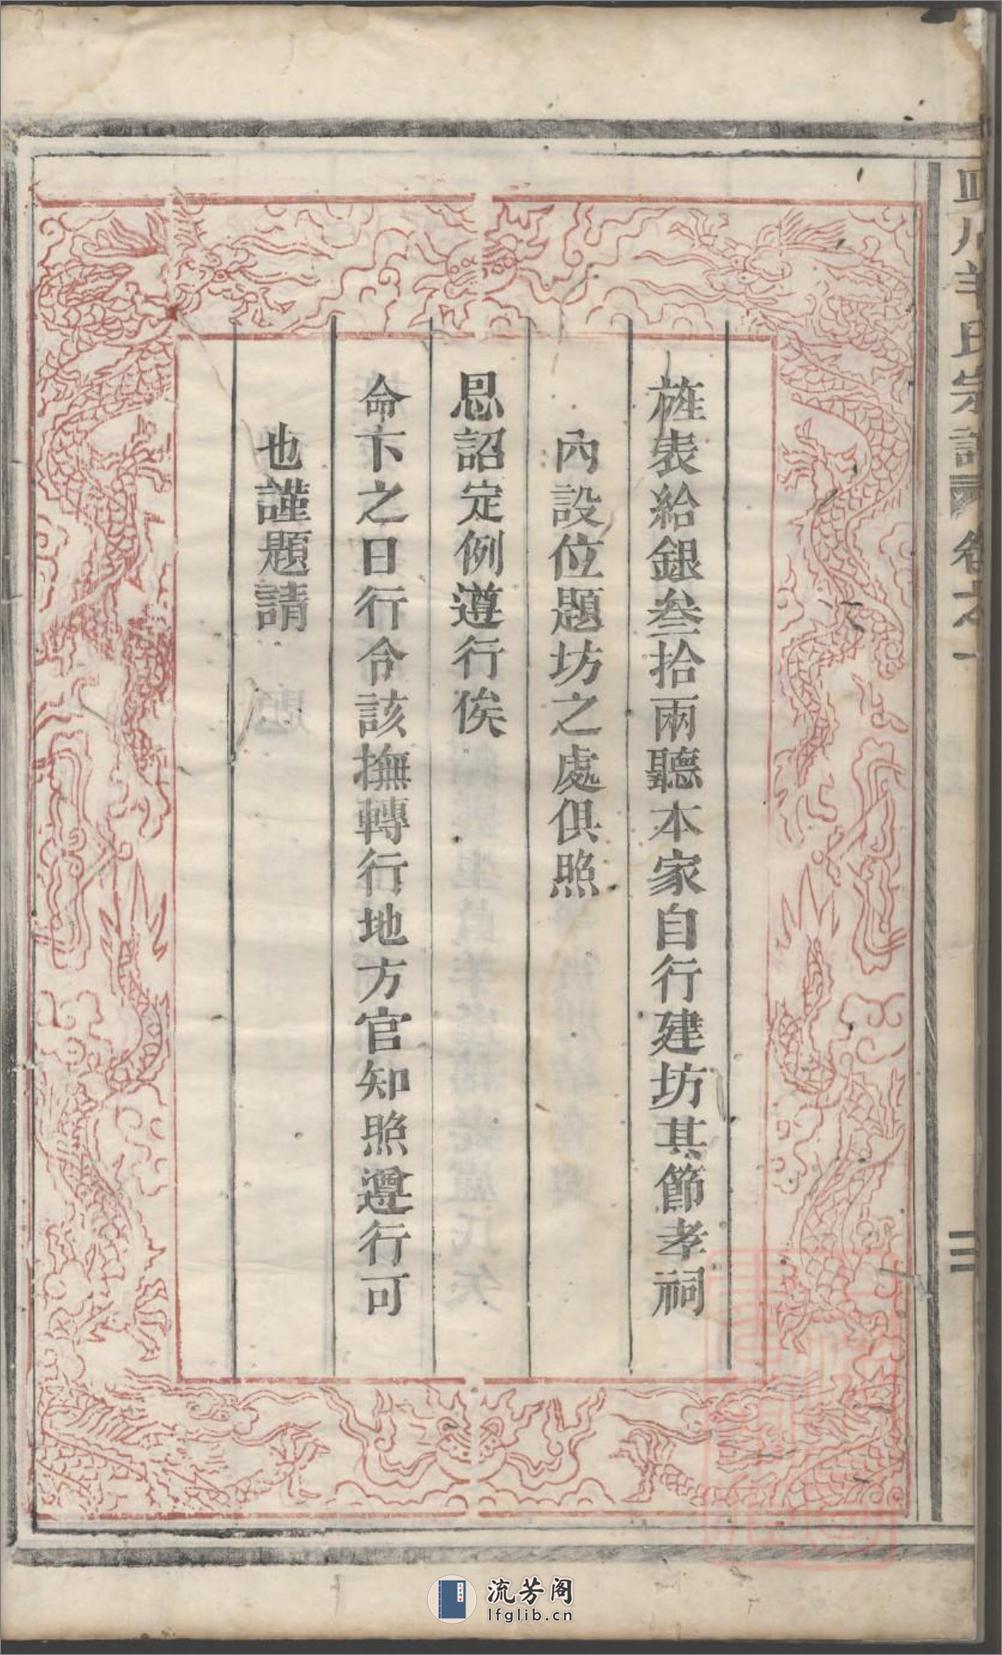 旌表給銀叁拾兩聽本家自行建坊其節孝祠
內設位題坊之處俱照
恩詔定例遵行俟
命下之日行令該撫轉行地方官知照遵行可
也謹題請
氏宗譜
卷之一
三
流芳阁
lfglib.cn